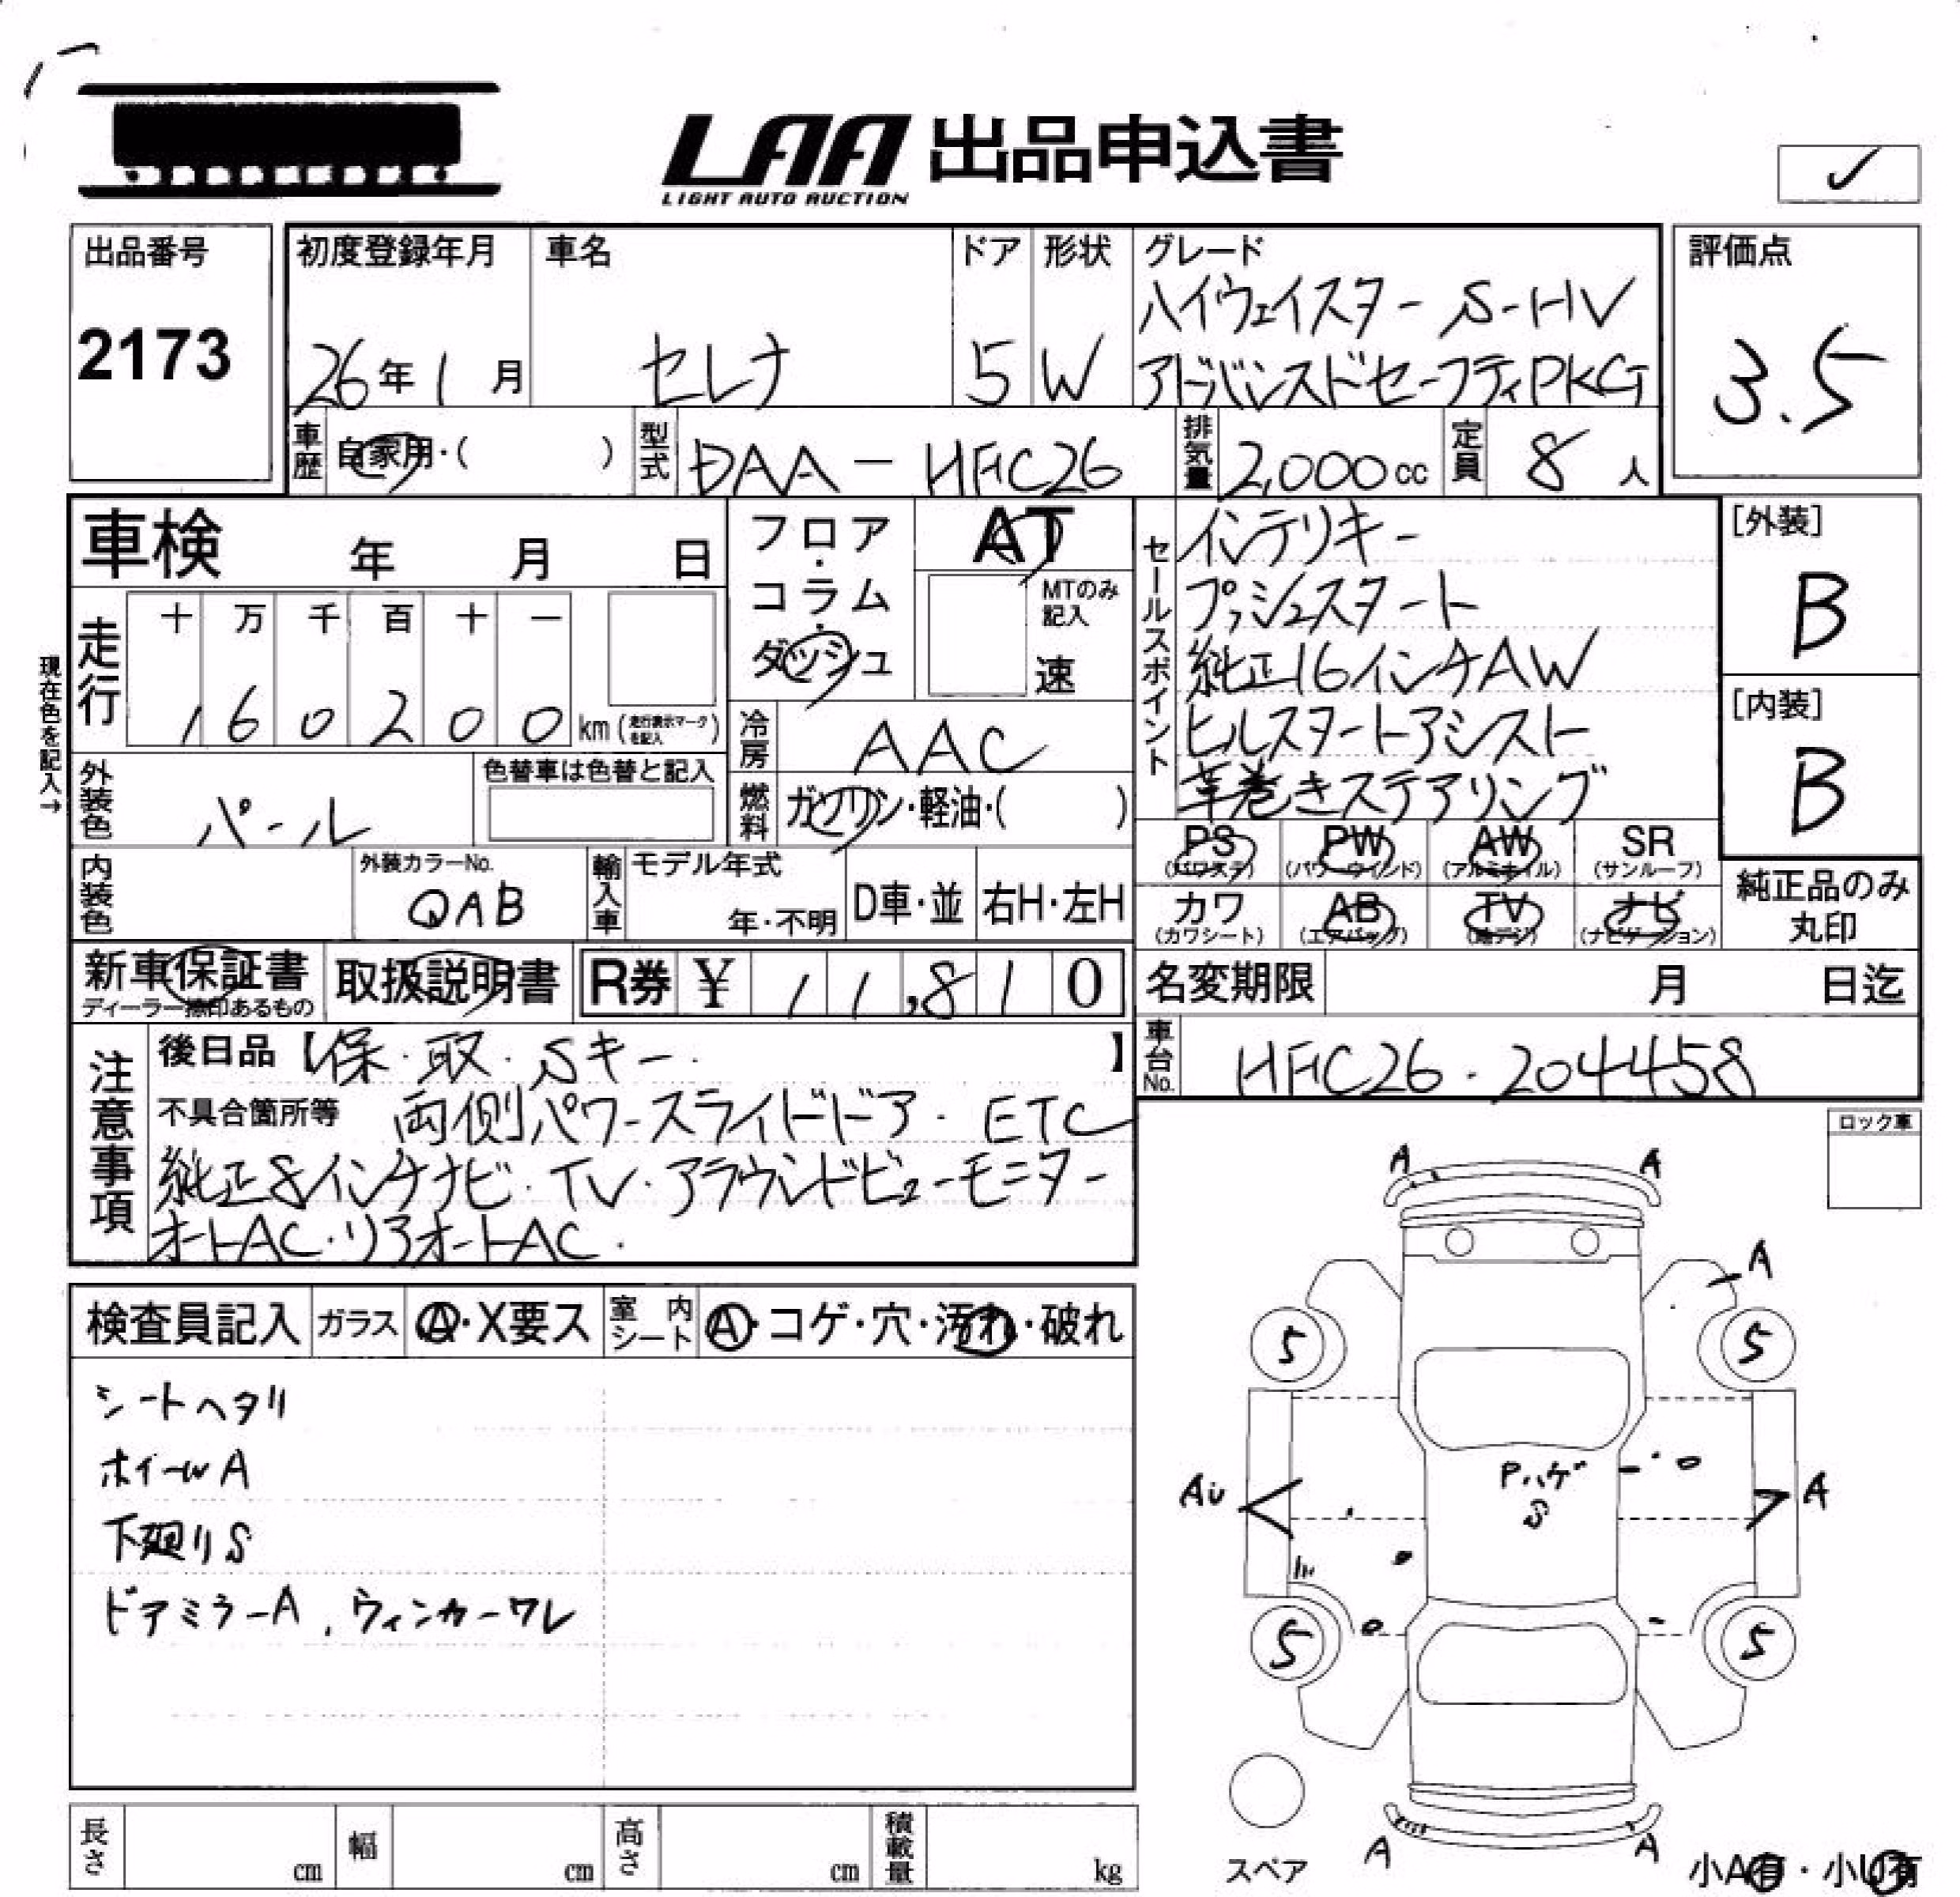 LAA 出品申込書
LIGHT AUTO AUCTION
✓
出品番号
2173
初度登録年月
26年1月
車名
セレナ
ドア
5
形状
W
グレード
ハイウェイスター S-HV
アドバンスドセーフティPKG
評価点
3.5
車歴
自家用・( )
型式
DAA-HFC26
排気量
2,000cc
定員
8人
車検 年 月 日
フロア・コラム・ダッシュ
AT
MTのみ記入
速
現在色を記入→
走行
十 万 千 百 十 一
1 6 0 2 0 0 km (走行表示マークを記入)
冷房
AAC
外装色
パール
色替車は色替と記入
燃料
ガソリン・軽油・( )
内装色
外装カラーNo.
QAB
輸入車
モデル年式
年・不明
D車・並
右H・左H
セールスポイント
インテリキー
プッシュスタート
純正16インチAW
ヒルスタートアシスト
革巻きステアリング
[外装]
B
[内装]
B
PS
(パワステ)
PW
(パワーウインド)
AW
(アルミホイル)
SR
(サンルーフ)
カワ
(カワシート)
AB
(エアバッグ)
TV
(地デジ)
ナビ
(ナビゲーション)
純正品のみ
丸印
新車保証書
ディーラー捺印あるもの
取扱説明書
R券 ¥ 11,810
名変期限 月 日迄
車台No.
HFC26-204458
注意事項
後日品【保・取・Sキー. 】
不具合箇所等 両側パワースライドドア・ETC
純正8インチナビ・TV・アラウンドビューモニター
オートAC・リアオートAC.
ロック車
検査員記入
ガラス
A・X要ス
室内シート
A・コゲ・穴・汚れ・破れ
シートヘタリ
ホイールA
下廻りS
ドアミラーA、ウィンカーワレ
A A
A
5 5
PハゲS
AU A
5 5
A A
スペア
小A有・小U有
長さ cm
幅 cm
高さ cm
積載量 kg